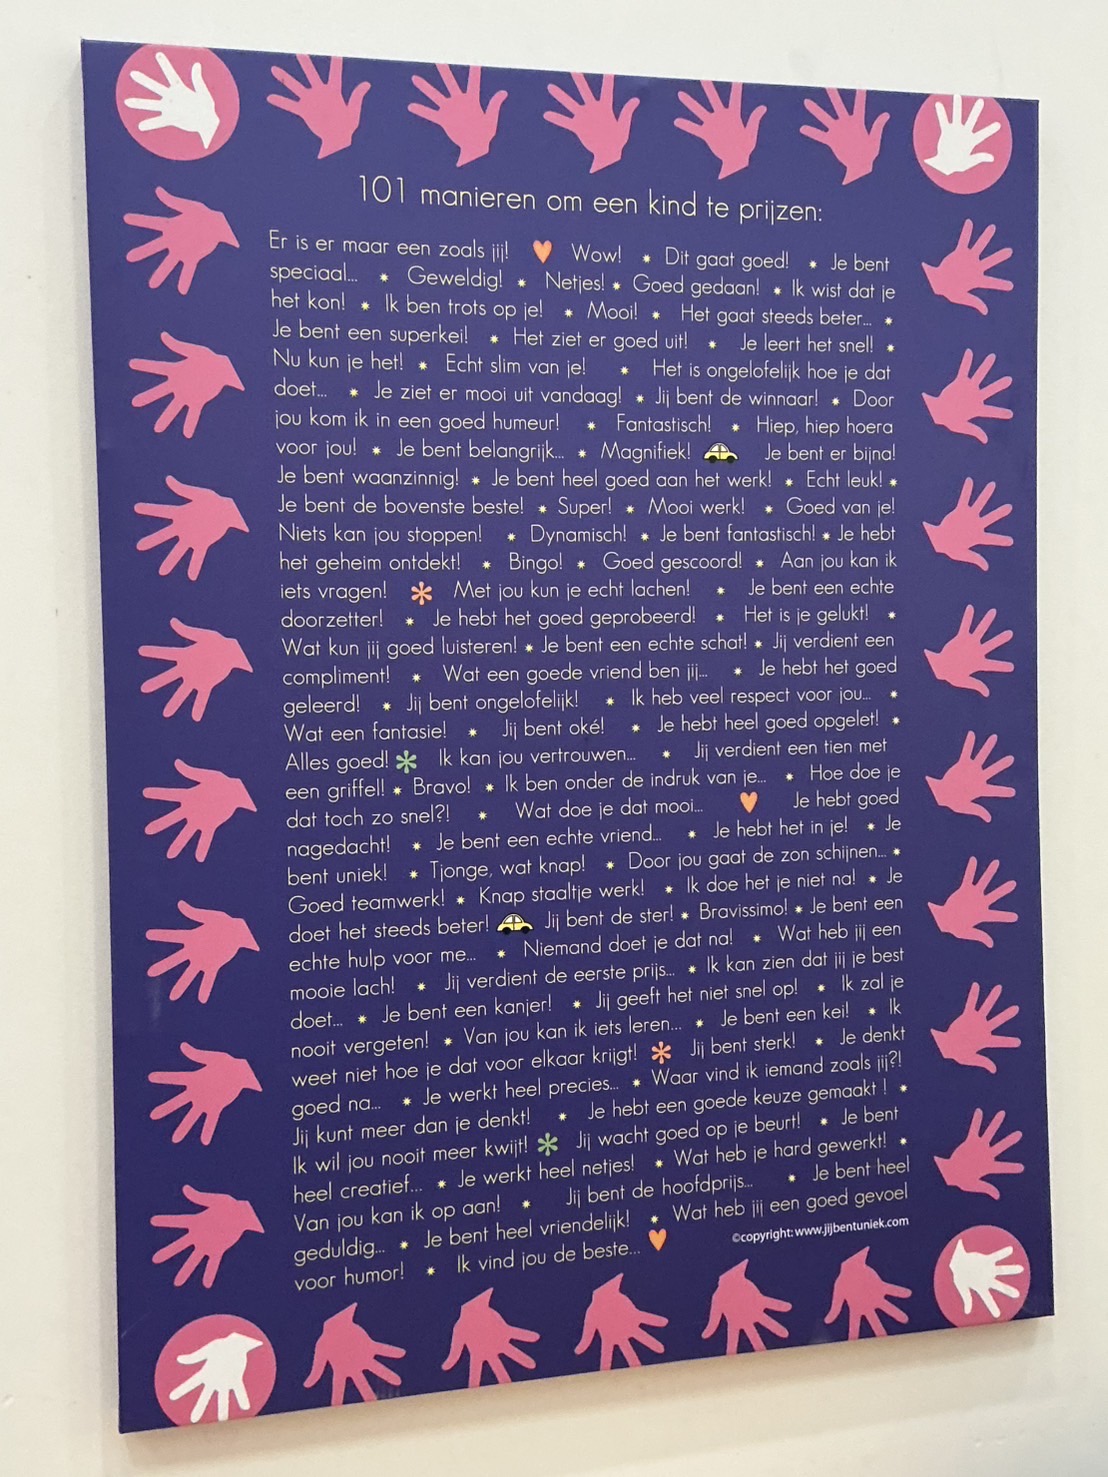 101 manieren om een kind te prijzen:
Er is er maar een zoals jij! Wow! * Dit gaat goed! * Je bent
speciaal... * Geweldig! * Netjes! * Goed gedaan! * Ik wist dat je
het kon! * Ik ben trots op je! * Mooi! * Het gaat steeds beter... *
Je bent een superkei! * Het ziet er goed uit! * Je leert het snel! *
Nu kun je het! * Echt slim van je! * Het is ongelofelijk hoe je dat
doet... * Je ziet er mooi uit vandaag! * Jij bent de winnaar! * Door
jou kom ik in een goed humeur! * Fantastisch! * Hiep, hiep hoera
voor jou! * Je bent belangrijk... * Magnifiek! Je bent er bijna!
Je bent waanzinnig! * Je bent heel goed aan het werk! * Echt leuk! *
Je bent de bovenste beste! * Super! * Mooi werk! * Goed van je!
Niets kan jou stoppen! * Dynamisch! * Je bent fantastisch! * Je hebt
het geheim ontdekt! * Bingo! * Goed gescoord! * Aan jou kan ik
iets vragen! * Met jou kun je echt lachen! * Je bent een echte
doorzetter! * Je hebt het goed geprobeerd! * Het is je gelukt! *
Wat kun jij goed luisteren! * Je bent een echte schat! * Jij verdient een
compliment! * Wat een goede vriend ben jij... * Je hebt het goed
geleerd! * Jij bent ongelofelijk! * Ik heb veel respect voor jou... *
Wat een fantasie! * Jij bent oké! * Je hebt heel goed opgelet! *
Alles goed! * Ik kan jou vertrouwen... * Jij verdient een tien met
een griffel! * Bravo! * Ik ben onder de indruk van je... * Hoe doe je
dat toch zo snel?! * Wat doe je dat mooi... Je hebt goed
nagedacht! * Je bent een echte vriend... * Je hebt het in je! * Je
bent uniek! * Tjonge, wat knap! * Door jou gaat de zon schijnen... *
Goed teamwerk! * Knap staaltje werk! * Ik doe het je niet na! * Je
doet het steeds beter! Jij bent de ster! * Bravissimo! * Je bent een
echte hulp voor me... * Niemand doet je dat na! * Wat heb jij een
mooie lach! * Jij verdient de eerste prijs... * Ik kan zien dat jij je best
doet... * Je bent een kanjer! * Jij geeft het niet snel op! * Ik zal je
nooit vergeten! * Van jou kan ik iets leren... * Je bent een kei! * Ik
weet niet hoe je dat voor elkaar krijgt! * Jij bent sterk! * Je denkt
goed na... * Je werkt heel precies... * Waar vind ik iemand zoals jij?!
Jij kunt meer dan je denkt! * Je hebt een goede keuze gemaakt ! *
Ik wil jou nooit meer kwijt! * Jij wacht goed op je beurt! * Je bent
heel creatief... * Je werkt heel netjes! * Wat heb je hard gewerkt! *
Van jou kan ik op aan! * Jij bent de hoofdprijs... * Je bent heel
geduldig... * Je bent heel vriendelijk! * Wat heb jij een goed gevoel
voor humor! * Ik vind jou de beste...
©copyright: www.jijbentuniek.com